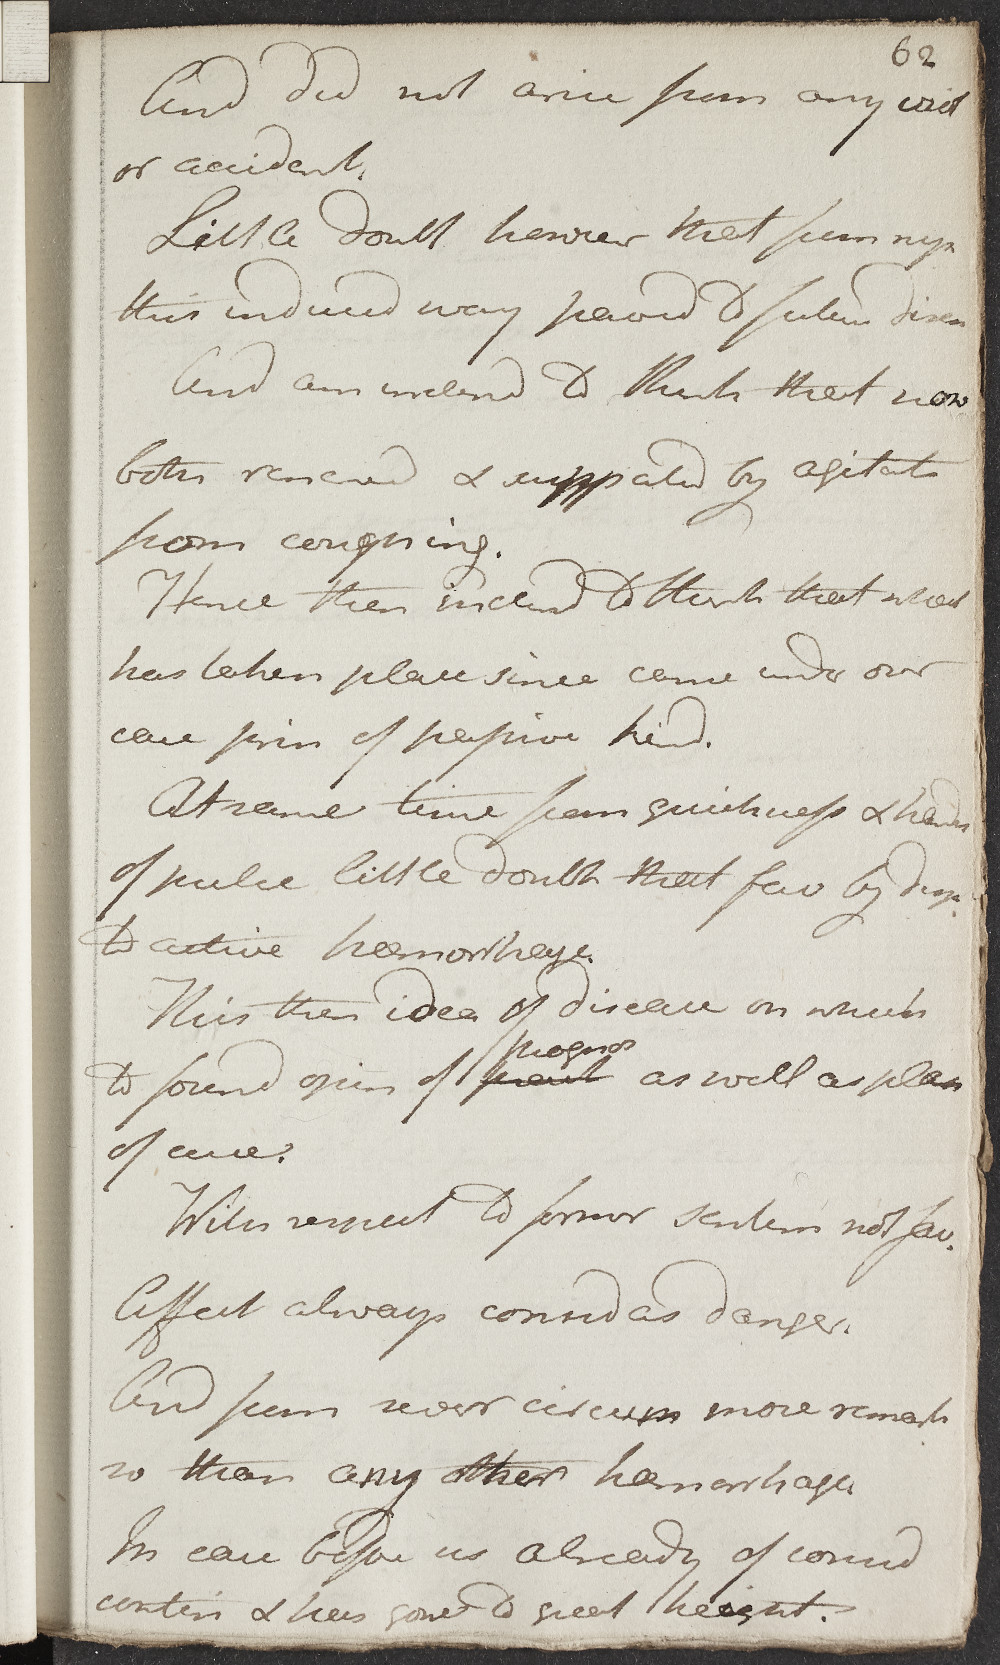 62
And did not arise from any viol
or accident.
Little doubt however that from
this induced way paved to future disea
And am inclind to think that now
both renewed & supported by agitat
from coughing.
Hence then inclind to think that what
has taken place since came under our
care prin of passive kind.
At same time from quickness & hardn
of pulse little doubt that fav by disp.
to active hæmorrhage.
This then idea of disease on which
prognos
to found opin of as well as plan
of cure.
With respect to former sentim not fav.
Affect always consid as danger.
And from sever circum more remark
so than any other hæmorrhage
In case before us already of consid
contin & has gone to great height.